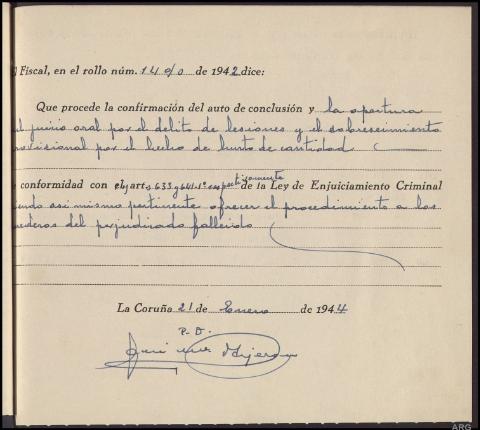 Fiscal, en el rollo núm. 1490 de 1942 dice:
Que procede la confirmación del auto de conclusión y la apertura
l juicio oral por el delito de lesiones y el sobreseimiento
ovisional por el hecho de hurto de cantidad
conformidad con arts 633 y 641-1º respectivamente de la Ley de Enjuiciamiento Criminal
endo asimismo pertinente ofrecer el procedimiento a los
rederos del perjudicado fallecido
La Coruña 21 de Enero de 1944
P. D.
ARG